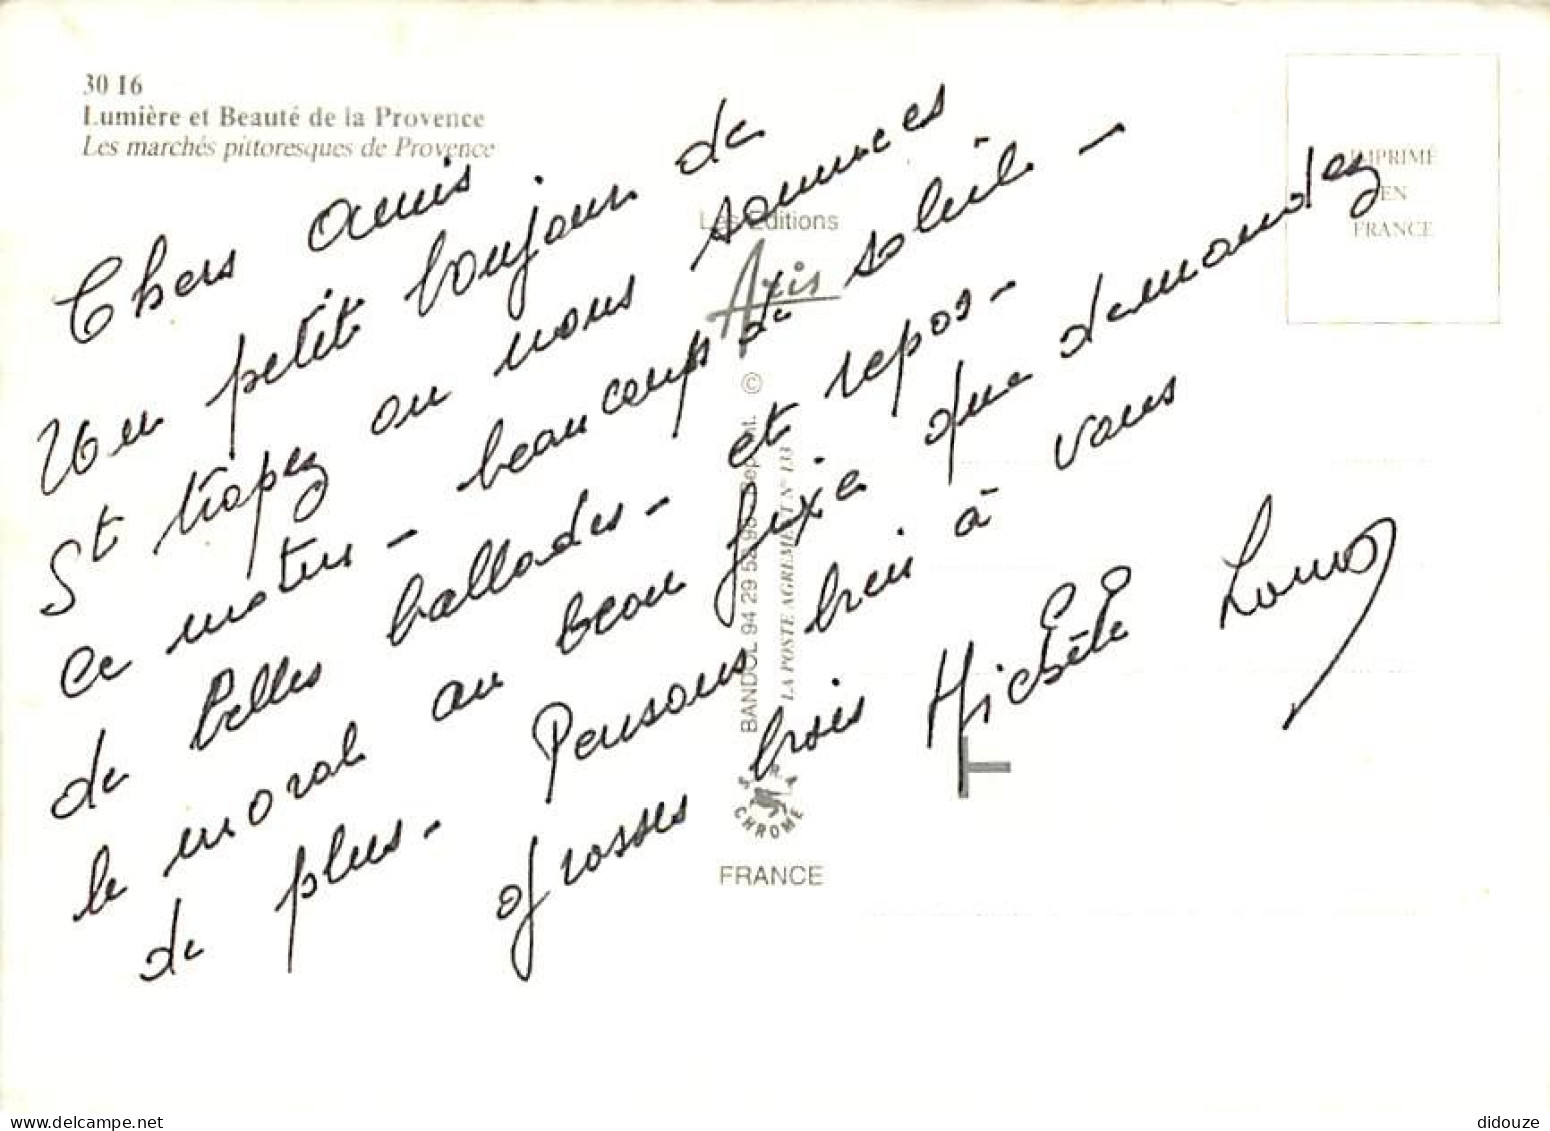 30 16
Lumière et Beauté de la Provence
Les marchés pittoresques de Provence
IMPRIMÉ
EN
FRANCE
Chers amis
Un petit bonjour de
St tropez ou nous sommes
ce matin - beaucoup de soleil -
de belles ballades - et repos -
le moral au beau fixe que demandez
de plus - Pensons bien à vous
grosses bises Michèle
Les Editions
Axis
BANDOL 94 29 52
LA POSTE AGREMENT N° 133
CHROME
FRANCE
delcampe.net
didouze